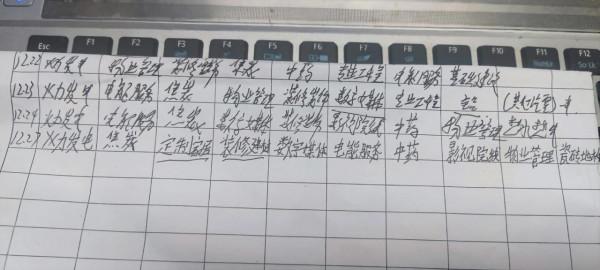 Esc F1 F2 F3 F4 F5 F6 F7 F8 F9 F10 F11 F12
12.22 火力发电 物业管理 装修装饰 焦炭 中药 专业工程 电能服务 基础建设
12.23 火力发电 电能服务 焦炭 物业管理 装修装饰 数字媒体 专业工程
12.24 火力发电 电能服务 焦炭 数字媒体 影视院线 中药 物业管理
12.27 火力发电 焦炭 定制家居 装修建材 数字媒体 电能服务 中药 影视院线 物业管理 瓷砖地板